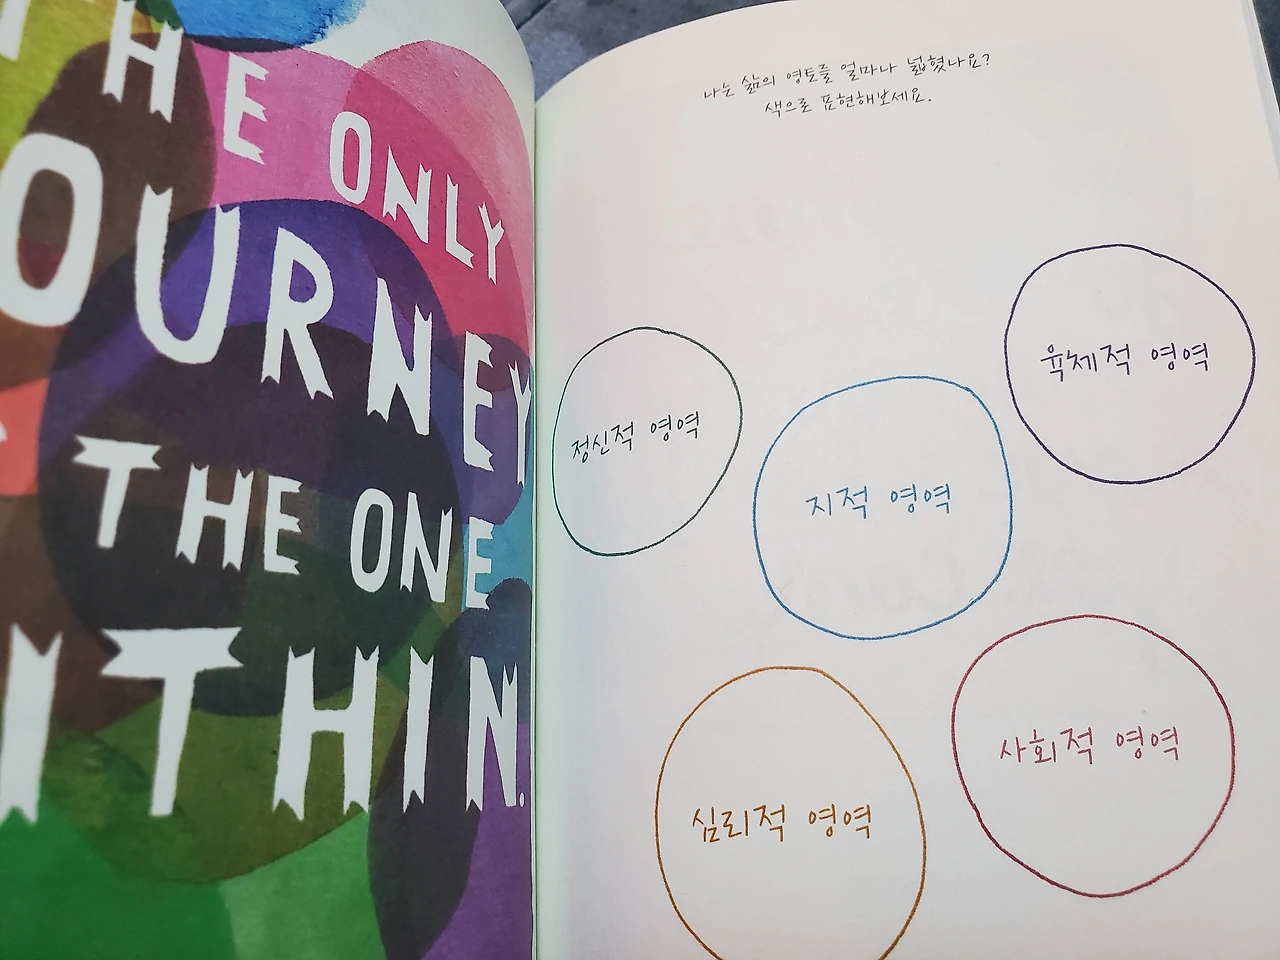 THE ONLY
JOURNEY
IS THE ONE
WITHIN.
나는 삶의 영토를 얼마나 넓혔나요?
색으로 표현해보세요.
육체적 영역
정신적 영역
지적 영역
사회적 영역
심리적 영역